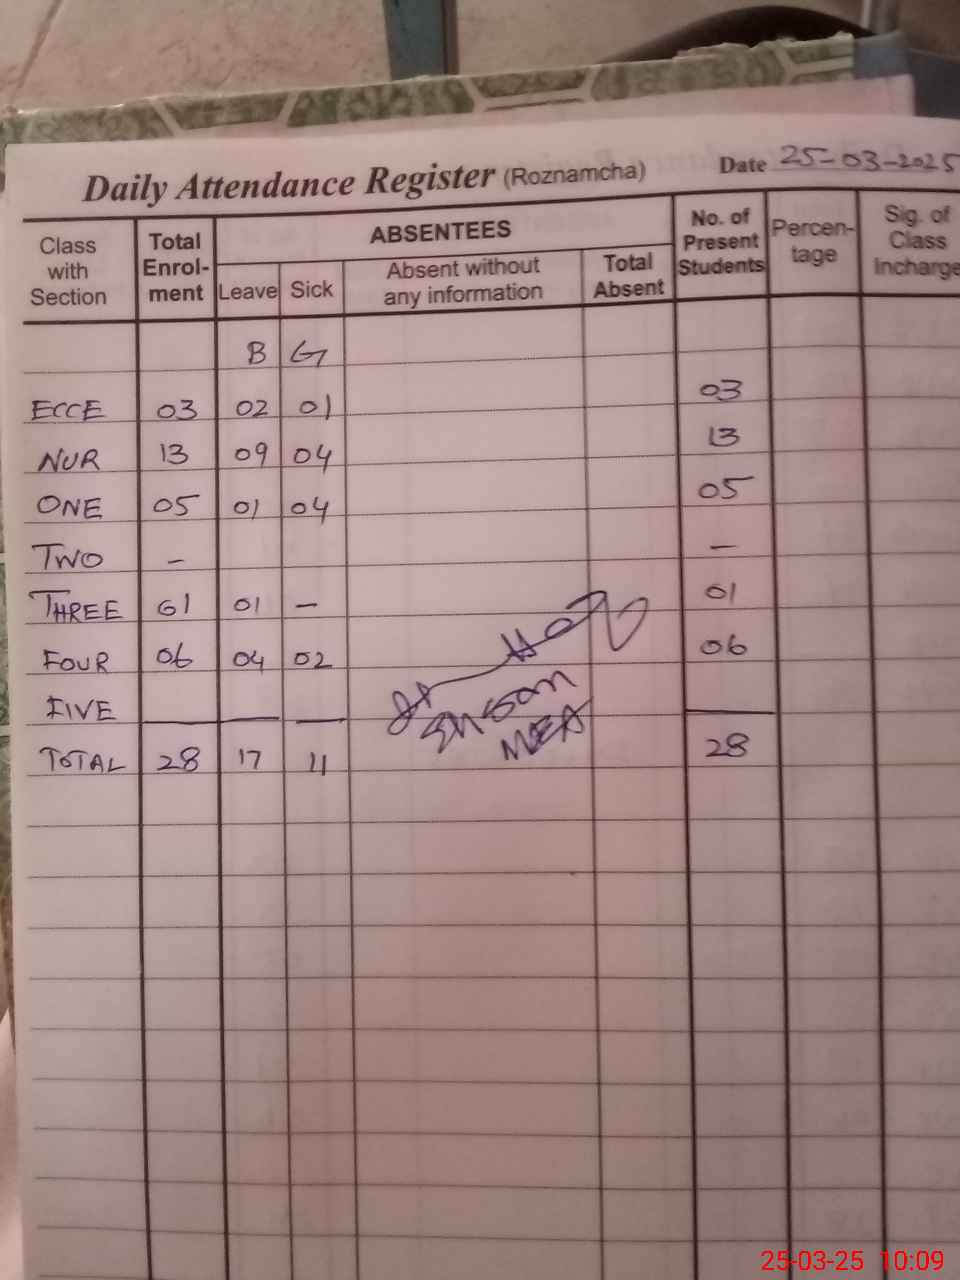 Daily Attendance Register (Roznamcha) Date 25-03-2025
Class with Section Total Enrol-ment ABSENTEES Leave Sick Absent without any information Total Absent No. of Present Students Percen-tage Sig. of Class Incharge
B G
ECCE 03 02 01 03
NUR 13 09 04 13
ONE 05 01 04 05
TWO – –
THREE 01 01 – 01
FOUR 06 04 02 06
FIVE — — — —
TOTAL 28 17 11 28
MEA
25-03-25 10:09